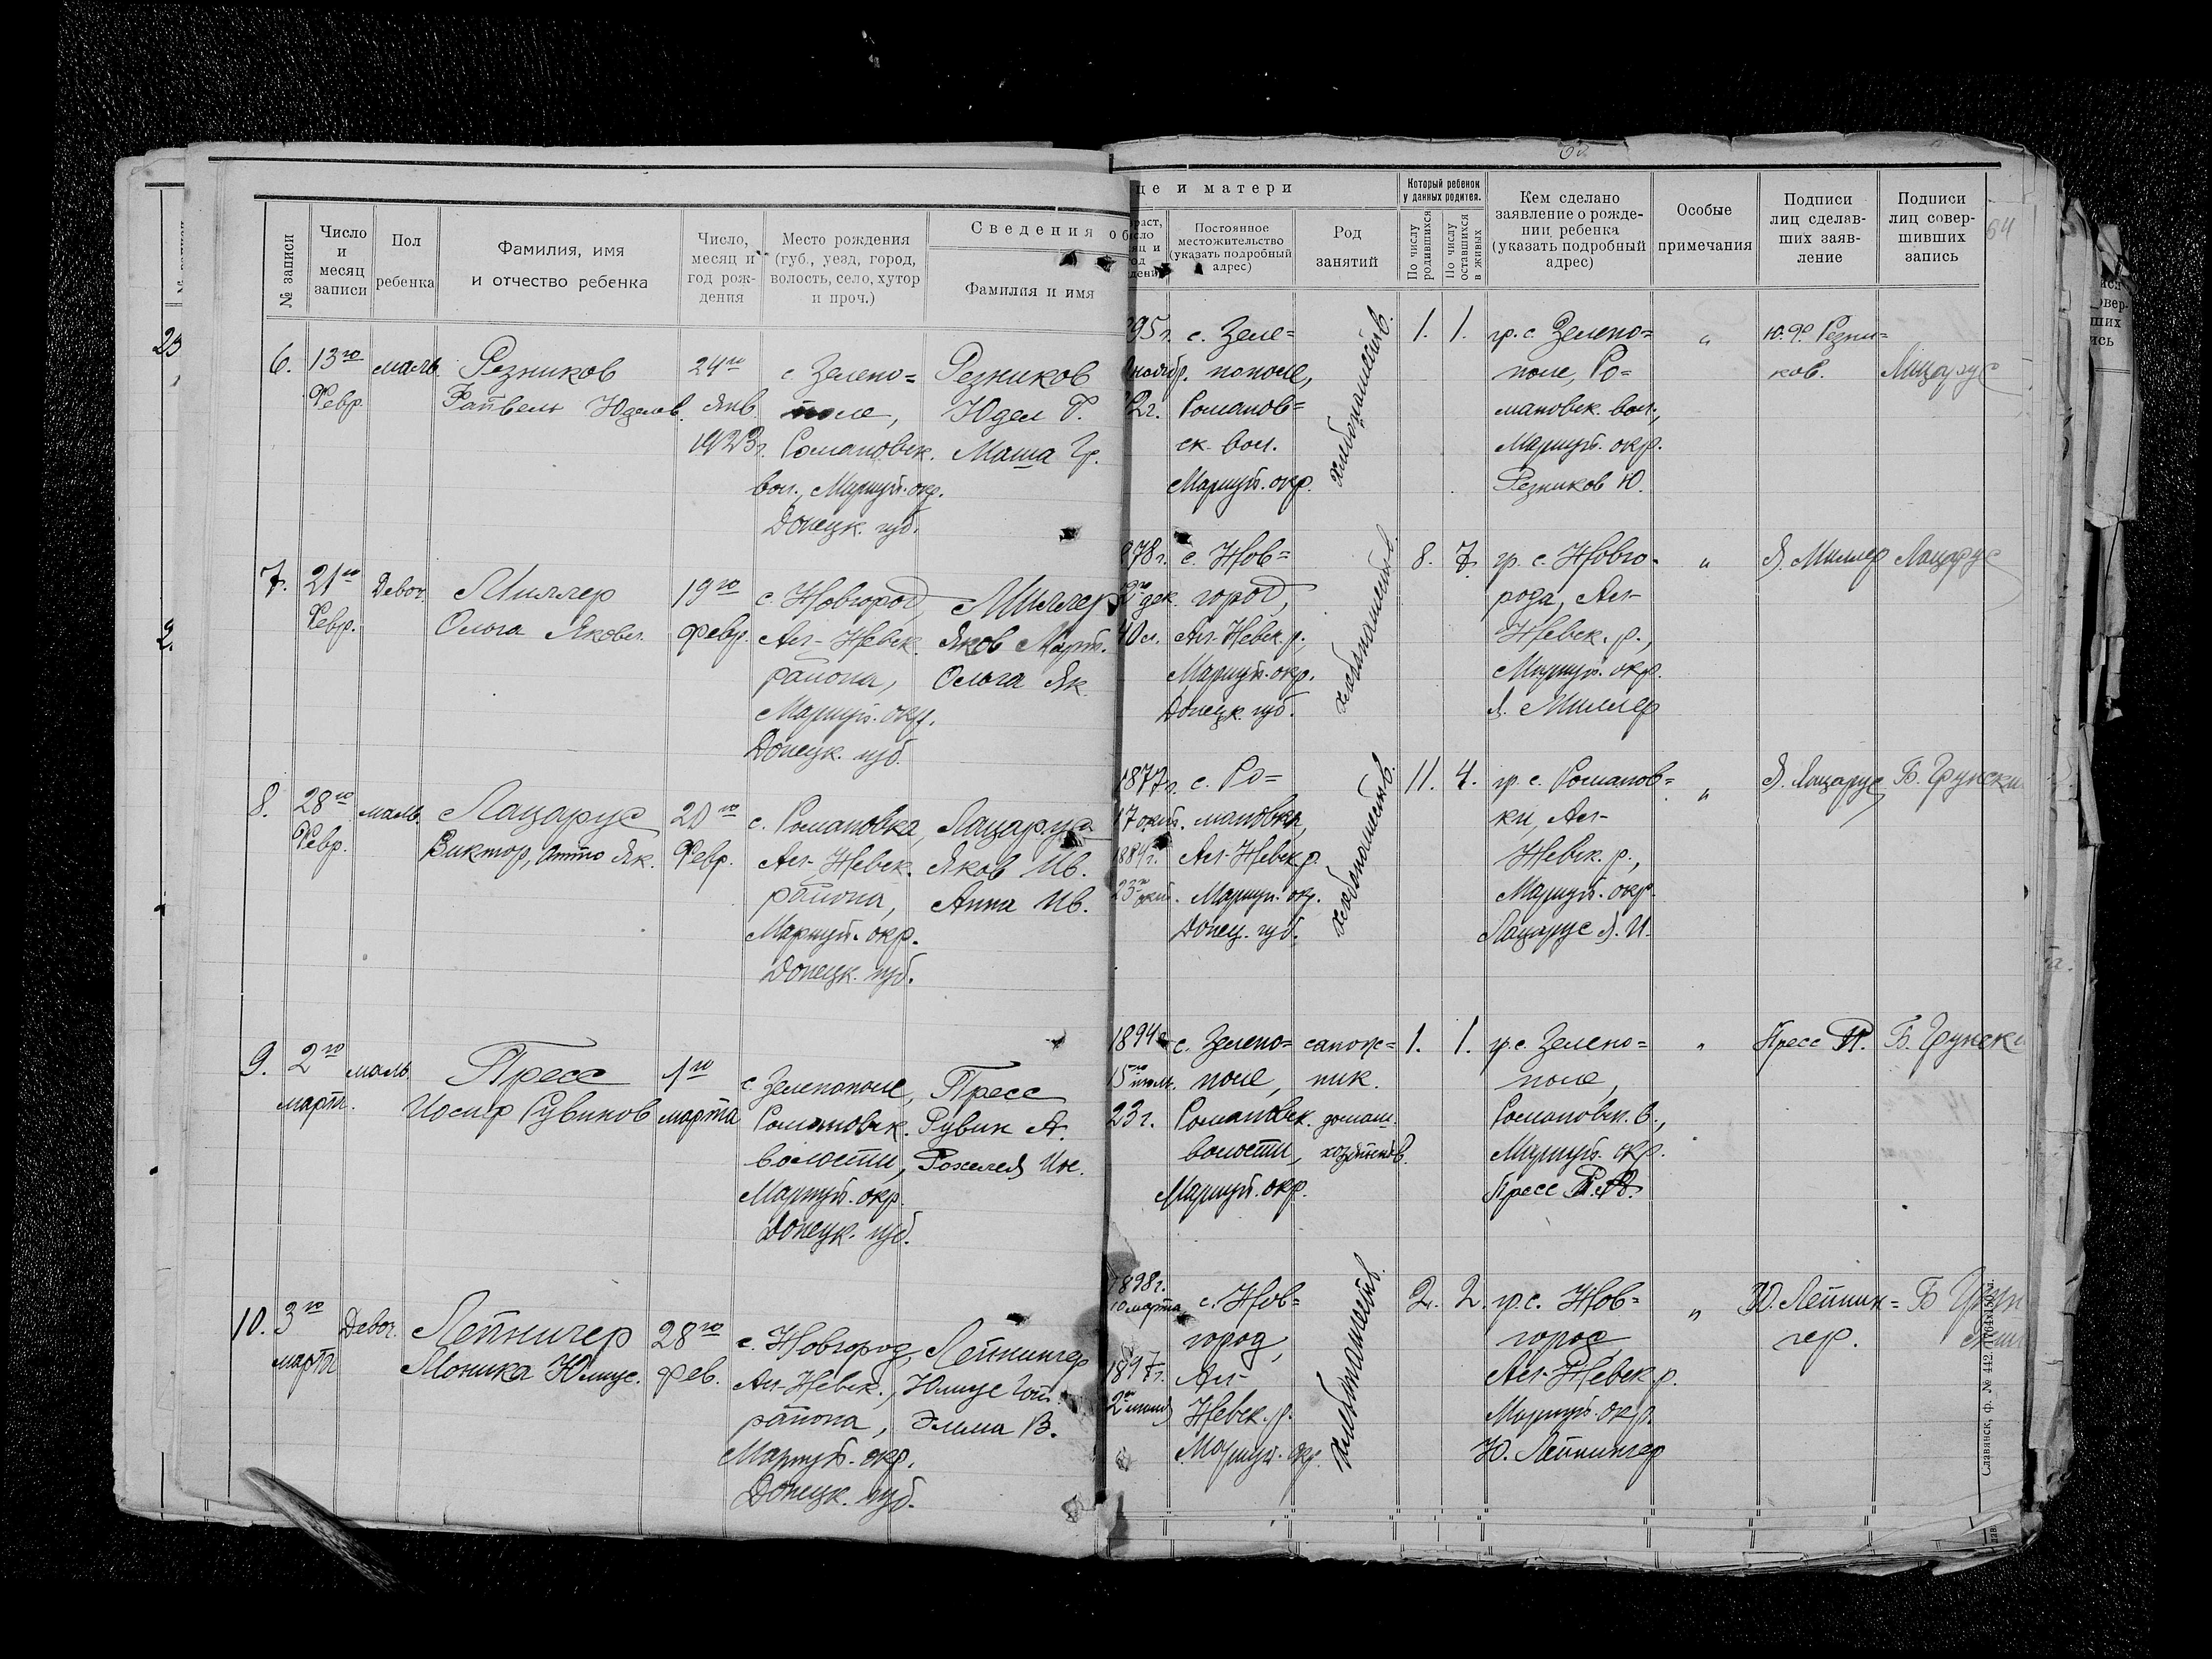 № записи
Число и месяц записи
Пол ребенка
Фамилия, имя и отчество ребенка
Число, месяц и год рождения
Место рождения (губ., уезд, город, волость, село, хутор и проч.)
Сведения о
Фамилия и имя
це и матери
Постоянное местожительство (указать подробный адрес)
Род занятий
Который ребенок у данных родител.
По числу родившихся
По числу оставшихся в живых
Кем сделано заявление о рождении ребенка (указать подробный адрес)
Особые примечания
Подписи лиц сделавших заявление
Подписи лиц совершивших запись
64
6.
13го
Февр.
мальч.
Резников
Файвель Юделев.
24го
Янв.
1923г.
с. Зелено=
поле,
Романовск.
вол., Мариуп. окр.
Донецк. губ.
Резников
Юдел Ф.
Маша Гр.
95г.
2г.
с. Зеле=
нополе,
Романов=
ск. вол.
Мариуп. окр.
хлебопашеств.
1.
1.
гр. с. Зелено=
поле, Ро=
мановск. вол.,
Мариуп. окр.
Резников Ю.
"
Ю. Ф. Резни=
ков.
Лацарус
7.
21го
Февр.
Девоч.
Миллер
Ольга Яковл.
19го
февр.
с. Новгород
Ал-Невск.
района,
Мариуп. окр.
Донецк. губ.
Миллер
Яков Март.
Ольга Як.
878г.
дек.
40л.
с. Нов=
город,
Ал-Невск. р.,
Мариуп. окр.
Донецк. губ.
хлебопашеств.
8.
7.
гр. с. Новго-
рода, Ал-
Невск. р.,
Мариуп. окр.
Я. Миллер
"
Я. Миллер
Лацарус
8.
28го
Февр.
мальч.
Лацарус
Виктор, Отто Як.
20го
Февр.
с. Романовка,
Ал-Невск.
района,
Мариуп. окр.
Донецк. губ.
Лацарус
Яков Ив.
Анна Ив.
1877г.
17 окт.
1884г.
23го окт.
с. Ро=
мановка,
Ал-Невск. р.
Мариуп. окр.
Донец. губ.
хлебопашеств.
11.
4.
гр. с. Романов=
ки, Ал-
Невск. р.,
Мариуп. окр.
Лацарус Я. И.
"
Я. Лацарус
Б. Грунски
9.
2го
март.
мальч.
Пресс
Иосиф Рувинов
1го
марта
с. Зеленополе,
Романовск.
волости,
Мариуп. окр.
Донецк. губ.
Пресс
Рувин А.
Рохеля Иос.
1894г.
15го
23г.
с. Зелено=
поле,
Романовск.
волости,
Мариуп. окр.
сапож=
ник.
домаш.
хозяйств.
1.
1.
гр. с. Зелено=
поле,
Романовск. в.,
Мариуп. окр.
Пресс Р. А.
"
Пресс Р.
Б. Грунски
10.
3го
марта
Девоч.
Лейнингер
Моника Юлиус.
28го
фев.
с. Новгород,
Ал-Невск.,
района,
Мариуп. окр.
Донецк. губ.
Лейнингер
Юлиус
Элма В.
1898г.
10 марта
1897г.
с. Нов=
город,
Ал-
Невск. р.
Мариуп. окр.
хлебопашеств.
2.
2.
гр. с. Нов=
город,
Ал-Невск р.
Мариуп. окр.
Ю. Лейнингер
"
Ю. Лейнин=
гер.
Б. Грун
Славянск, ф. № 442.